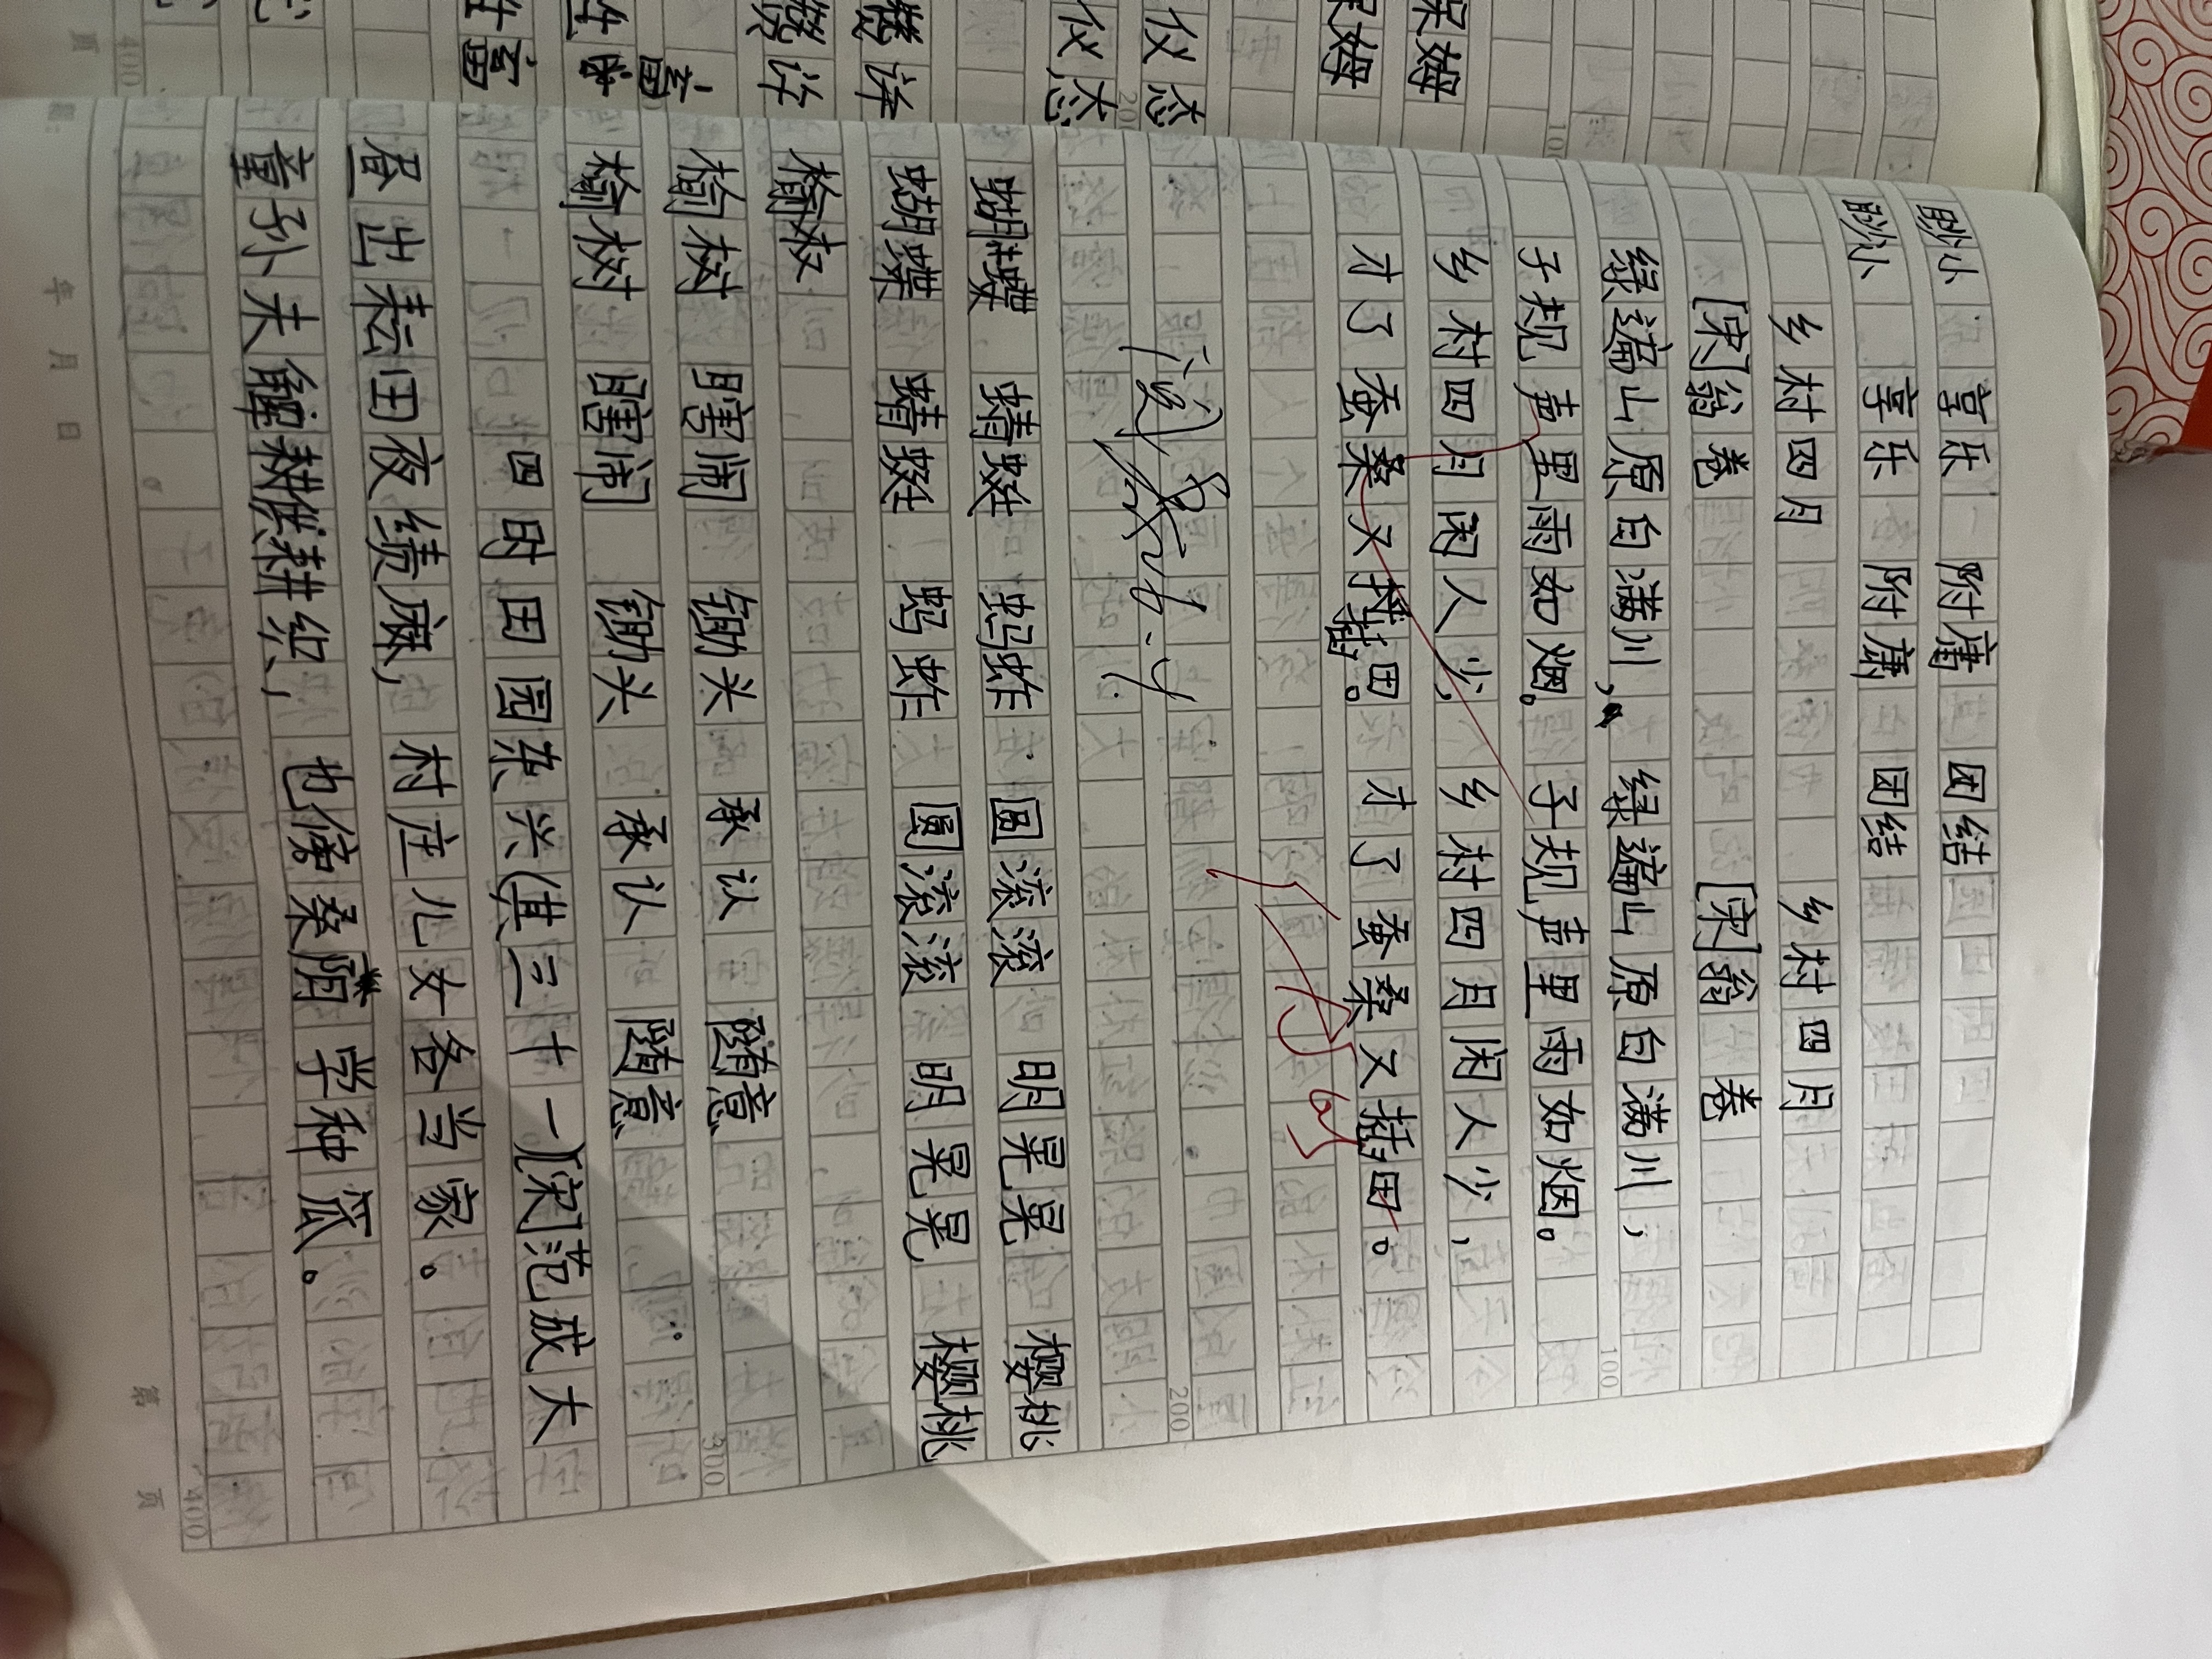 眇小 享乐 附庸 团结
眇小 享乐 附庸 团结
乡村四月 乡村四月
[宋]翁卷 [宋]翁卷
绿遍山原白满川， 绿遍山原白满川，
子规声里雨如烟。 子规声里雨如烟。
乡村四月闲人少， 乡村四月闲人少，
才了蚕桑又插田。 才了蚕桑又插田。
100
200
蝴蝶 蜻蜓 蚂蚱 圆滚滚 明晃晃 樱桃
蝴蝶 蜻蜓 蚂蚱 圆滚滚 明晃晃 樱桃
榆树 瞎闹 锄头 承认 随意
300
榆树 瞎闹 锄头 承认 随意
四时田园杂兴(其三十一)[宋]范成大
昼出耘田夜绩麻， 村庄儿女各当家。
童孙未解耕织， 也傍桑阴学种瓜。
400
年 月 日
第 页
保姆
保姆
仪态
仪态
100
200
400
页